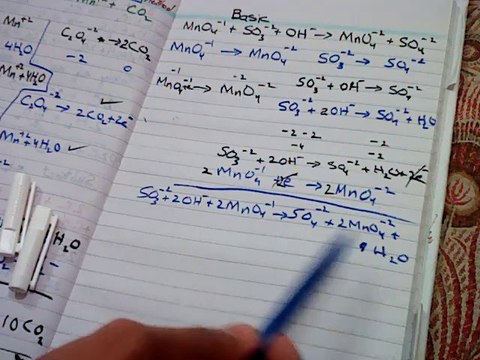 Mn⁺²
4H₂O
Mn⁺²+4H₂O
+ CO₂
C₂O₄⁻² → 2CO₂
-2 0
C₂O₄⁻² → 2CO₂+2e⁻ ✓
Mn⁺²+4H₂O ✓
H₂O
10CO₂
Basic
MnO₄⁻¹ + SO₃⁻² + OH⁻ → MnO₄⁻² + SO₄⁻²
MnO₄⁻¹ → MnO₄⁻² SO₃⁻² → SO₄⁻²
MnO₄⁻¹+e → MnO₄⁻² SO₃⁻² + OH⁻ → SO₄⁻²
SO₃⁻² + 2OH⁻ → SO₄⁻² + H₂O
-2 -2 -2
-4 -2
SO₃⁻² + 2OH⁻ → SO₄⁻² + H₂O + 2e⁻
2 MnO₄⁻¹ +2e → 2MnO₄⁻²
SO₃⁻² + 2OH⁻ + 2MnO₄⁻¹ → SO₄⁻² + 2MnO₄⁻² +
H₂O